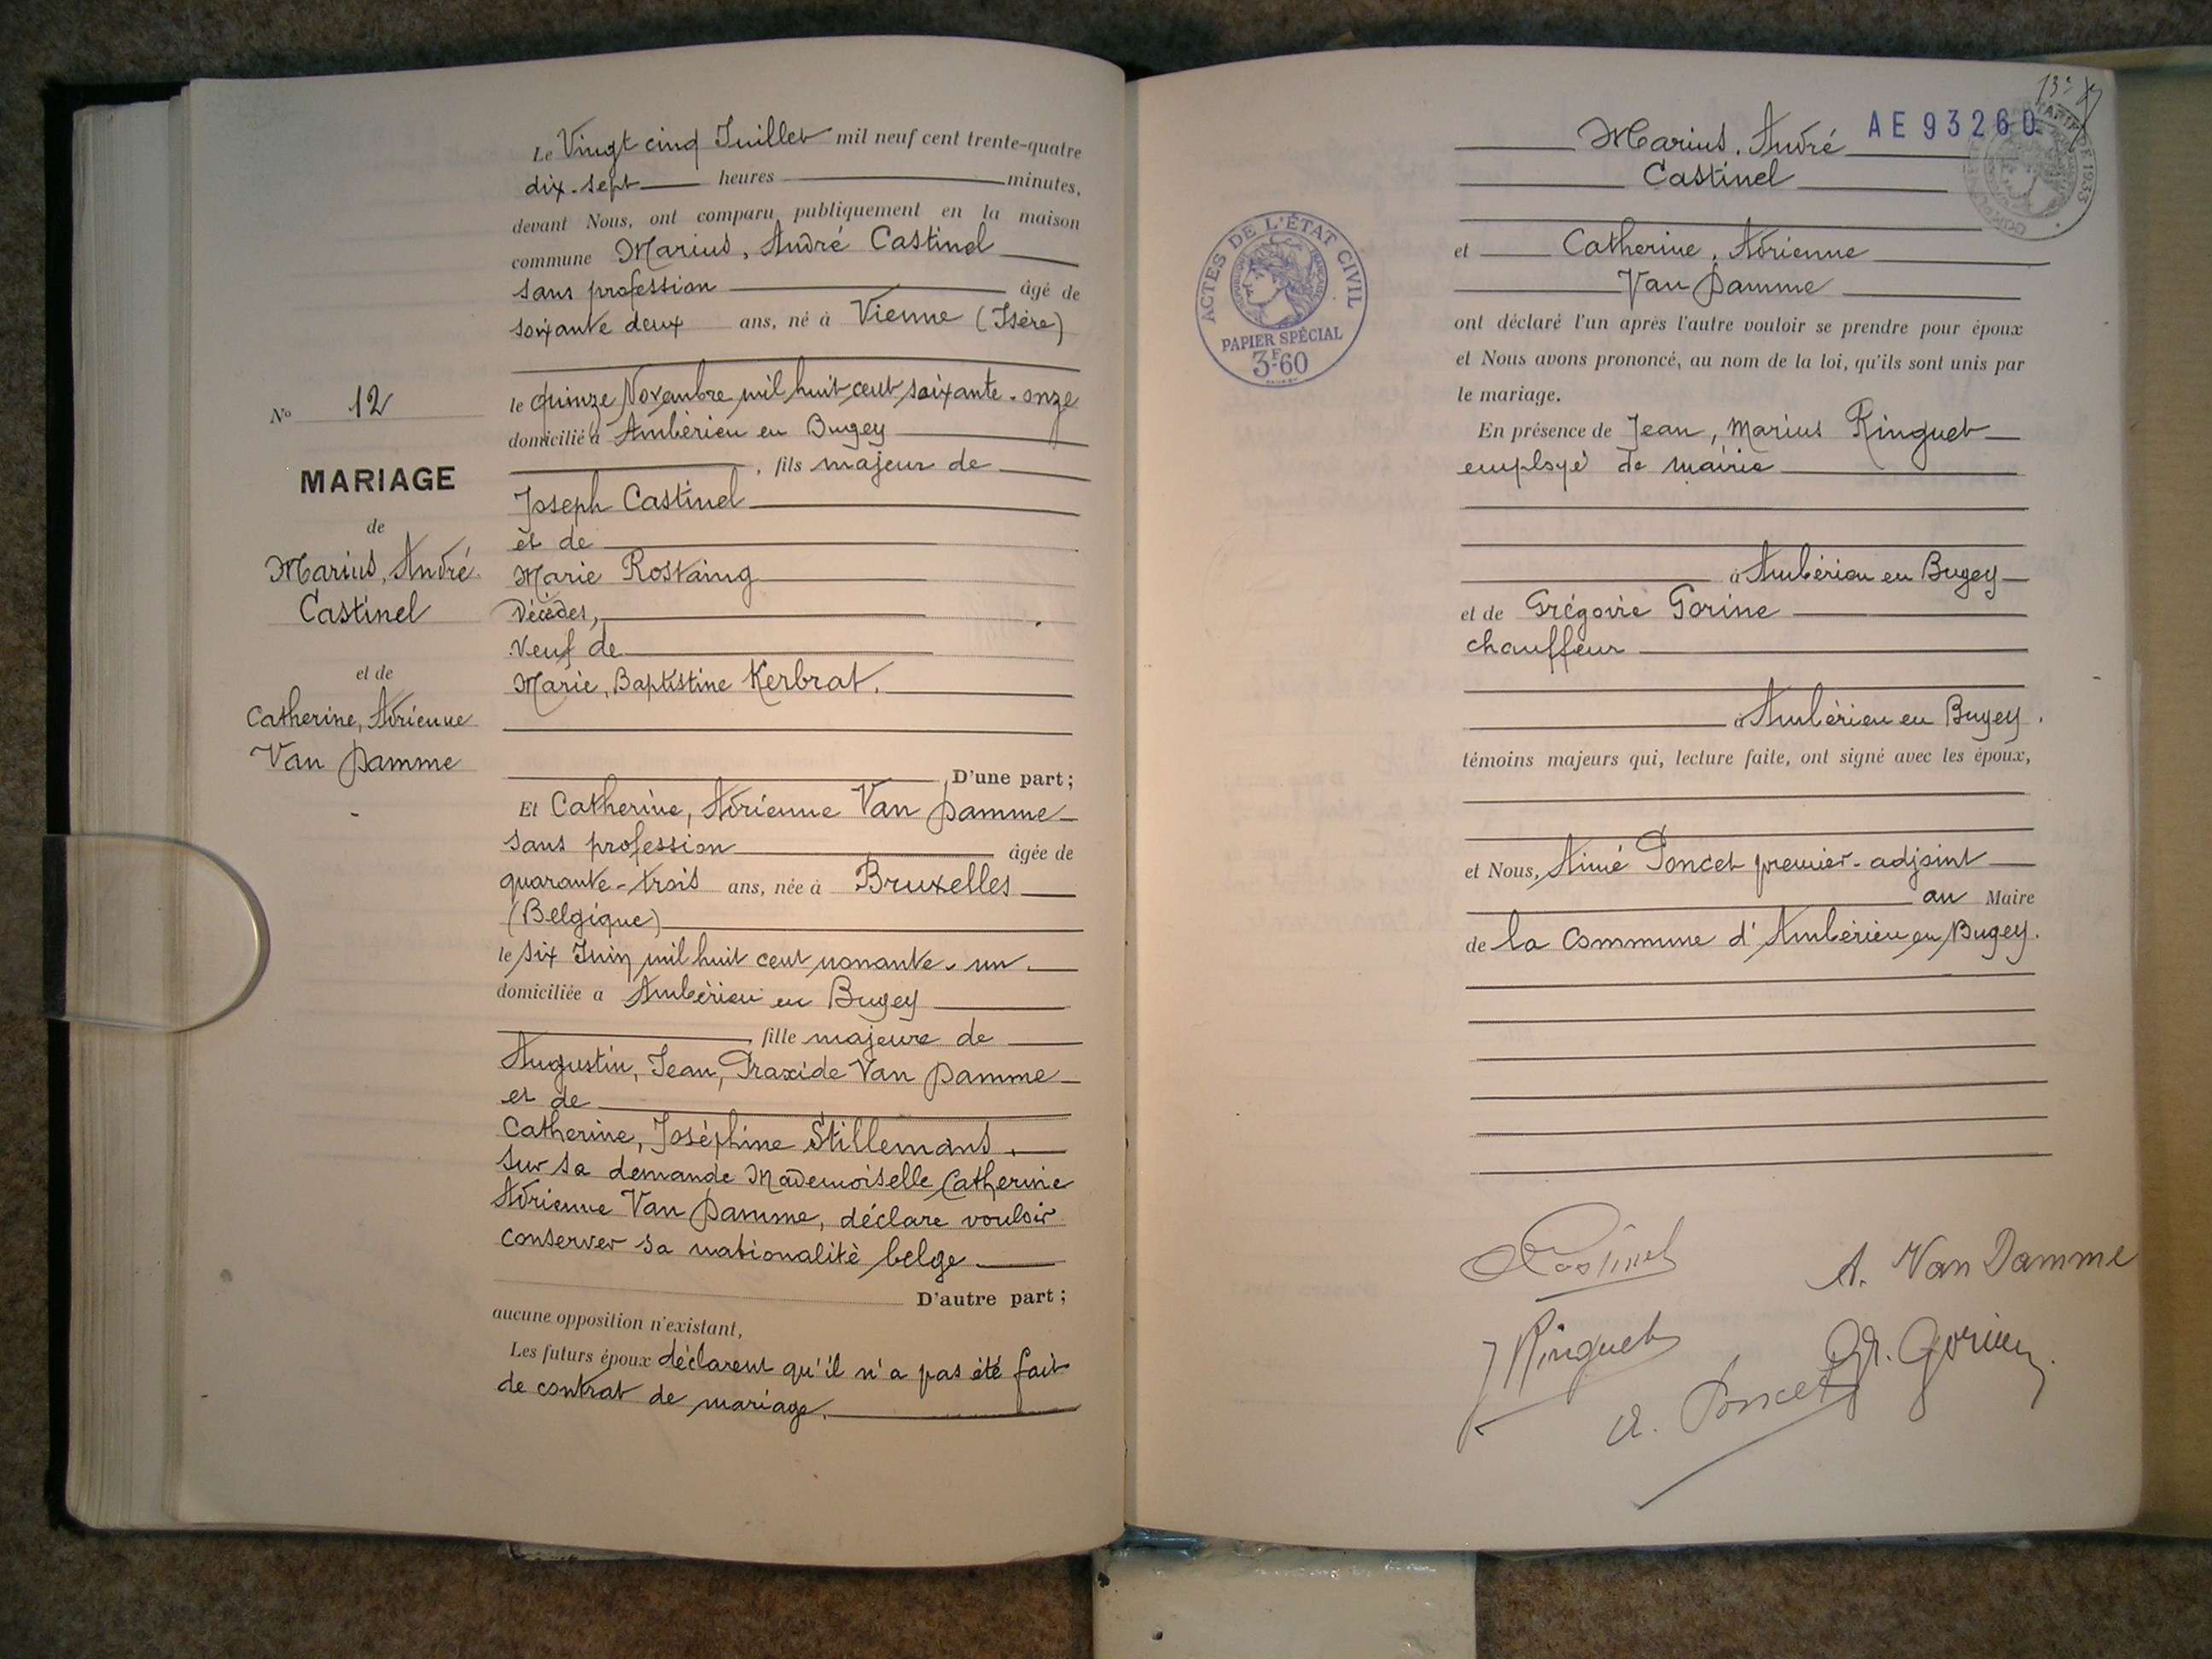 Le Vingt cinq Juillet mil neuf cent trente-quatre
dix-sept heures minutes,
devant Nous, ont comparu publiquement en la maison
commune Marius, André Castinel
sans profession âgé de
soixante deux ans, né à Vienne (Isère)
le quinze Novembre mil huit cent soixante-onze
domicilié à Ambérieu en Bugey
, fils majeur de
Joseph Castinel
et de
Marie Rostaing
décédés,
Veuf de
Marie, Baptistine Kerbrat.
D'une part ;
Et Catherine, Adrienne Van Damme
sans profession âgée de
quarante-trois ans, née à Bruxelles
(Belgique)
le six Juin mil huit cent nonante-un
domiciliée a Ambérieu en Bugey
, fille majeure de
Augustin, Jean, Praxide Van Damme
et de
Catherine, Joséphine Stillemans.
Sur sa demande Mademoiselle Catherine
Adrienne Van Damme, déclare vouloir
conserver sa nationalité belge
D'autre part ;
aucune opposition n'existant,
Les futurs époux déclarent qu'il n'a pas été fait
de contrat de mariage.
No 12
MARIAGE
de
Marius, André
Castinel
et de
Catherine, Adrienne
Van Damme
AE93260
Marius, André
Castinel
et Catherine, Adrienne
Van Damme
ont déclaré l'un après l'autre vouloir se prendre pour époux
et Nous avons prononcé, au nom de la loi, qu'ils sont unis par
le mariage.
En présence de Jean, Marius Ringuet
employé de mairie
à Ambérieu en Bugey
et de Grégoire Gorine
chauffeur
à Ambérieu en Bugey.
témoins majeurs qui, lecture faite, ont signé avec les époux,
et Nous, Aimé Poncet premier-adjoint
au Maire
de la Commune d'Ambérieu en Bugey.
ACTES DE L'ÉTAT CIVIL
RÉPUBLIQUE FRANÇAISE
PAPIER SPÉCIAL
3F60
TARIF DE 1933
Castinel
A. Van Damme
J Ringuet
Gr. Gorine
A. Poncet